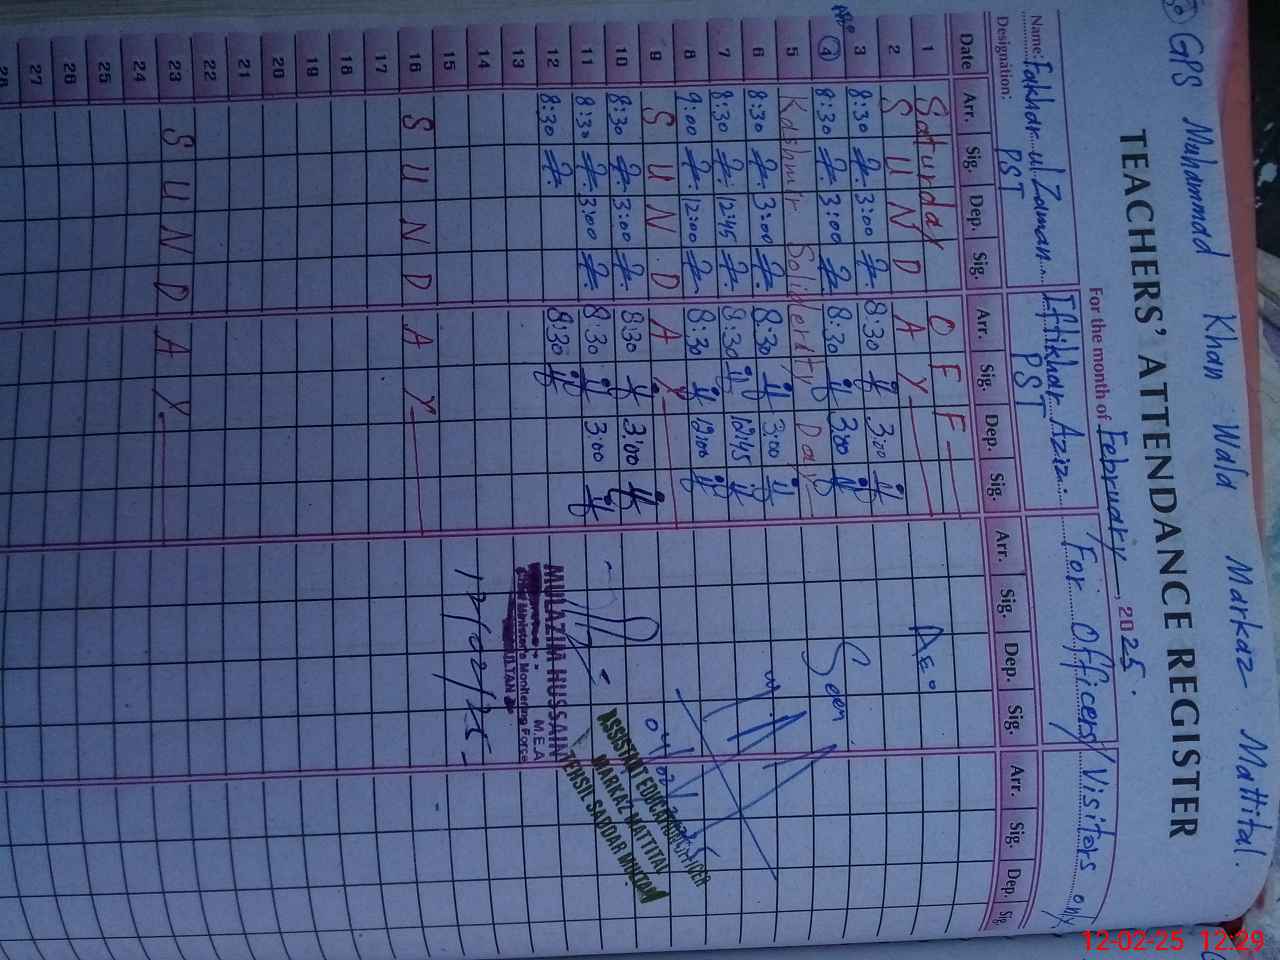 GPS Muhammad Khan Wala Markaz Mattital.
TEACHERS' ATTENDANCE REGISTER
For the month of February, 2025.
Name: Fakhar ul Zaman Iftikhar Aziz For Officers/Visitors only
Designation: PST PST
Date Arr. Sig. Dep. Sig. Arr. Sig. Dep. Sig. Arr. Sig. Dep. Sig. Arr. Sig. Dep. Sig.
1 Saturday OFF
2 SUNDAY
3 8:30 3:00 8:30 3:00
4 8:30 3:00 8:30 3:00
5 Kashmir Soliderity Day
6 8:30 3:00 8:30 3:00
7 8:30 12:45 8:30 12:45
8 9:00 12:00 8:30 12:00
9 SUNDAY
10 8:30 3:00 8:30 3:00
11 8:30 3:00 8:30 3:00
12 8:30 8:30
13
14
15
16 SUNDAY
17
18
19
20
21
22
23 SUNDAY
24
25
26
27
28
AEO
Seen
04/02/2025
ASSISTANT EDUCATION OFFICER
MARKAZ MATTITAL
TEHSIL SADDAR MULTAN
MULAZIM HUSSAIN
M.E.A
Chief Minister's Monitoring Force
MULTAN
12/02/25
12-02-25 12:29